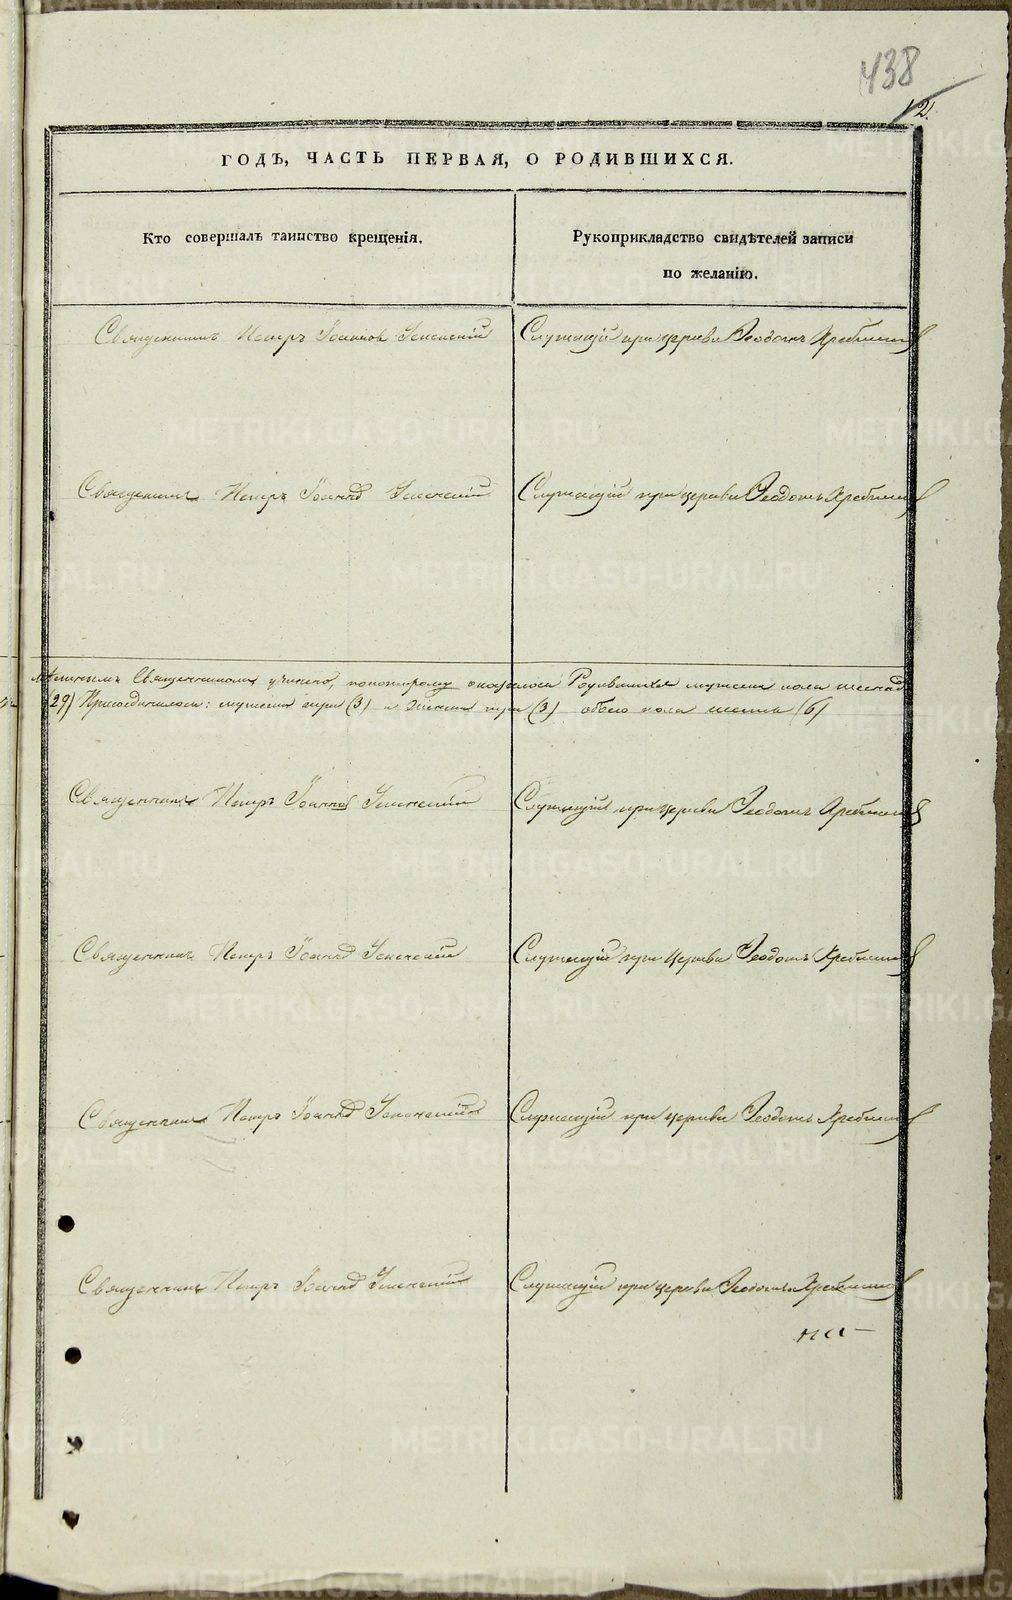 438
12.
ГОДЪ, ЧАСТЬ ПЕРВАЯ, О РОДИВШИХСЯ.
Кто совершалъ таинство крещенія.
Рукоприкладство свидѣтелей записи
по желанію.
Священникъ Петръ Іоанновъ Успенскій
Служащій при церкви Ѳеодотъ
Священникъ Петръ Іоаннов Успенскій
Служащій при церкви Ѳеодотъ
Священником учинено, по которому оказалось Родившихся мужеска пола
(29) Присоединилось: мужеска три (3) и Женска три (3) обоего пола шесть (6)
Священникъ Петръ Іоаннов Успенскій
Служащій при церкви Ѳеодотъ
Священникъ Петръ Іоаннов Успенскій
Служащій при церкви Ѳеодотъ
Священникъ Петръ Іоаннов Успенскій
Служащій при церкви Ѳеодотъ
Священникъ Петръ Іоаннов Успенскій
Служащій при церкви Ѳеодотъ
METRIKI.GASO-URAL.RU